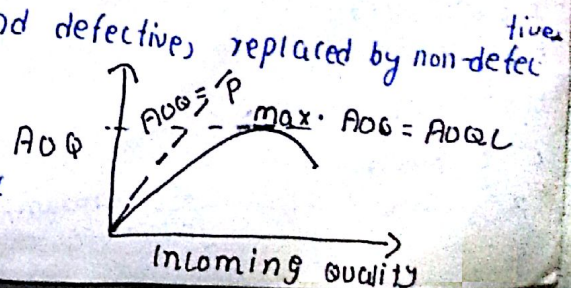 tives
nd defective, replaced by non-defec
AOQ = P
max. AOQ = AOQL
AOQ
Incoming Quality